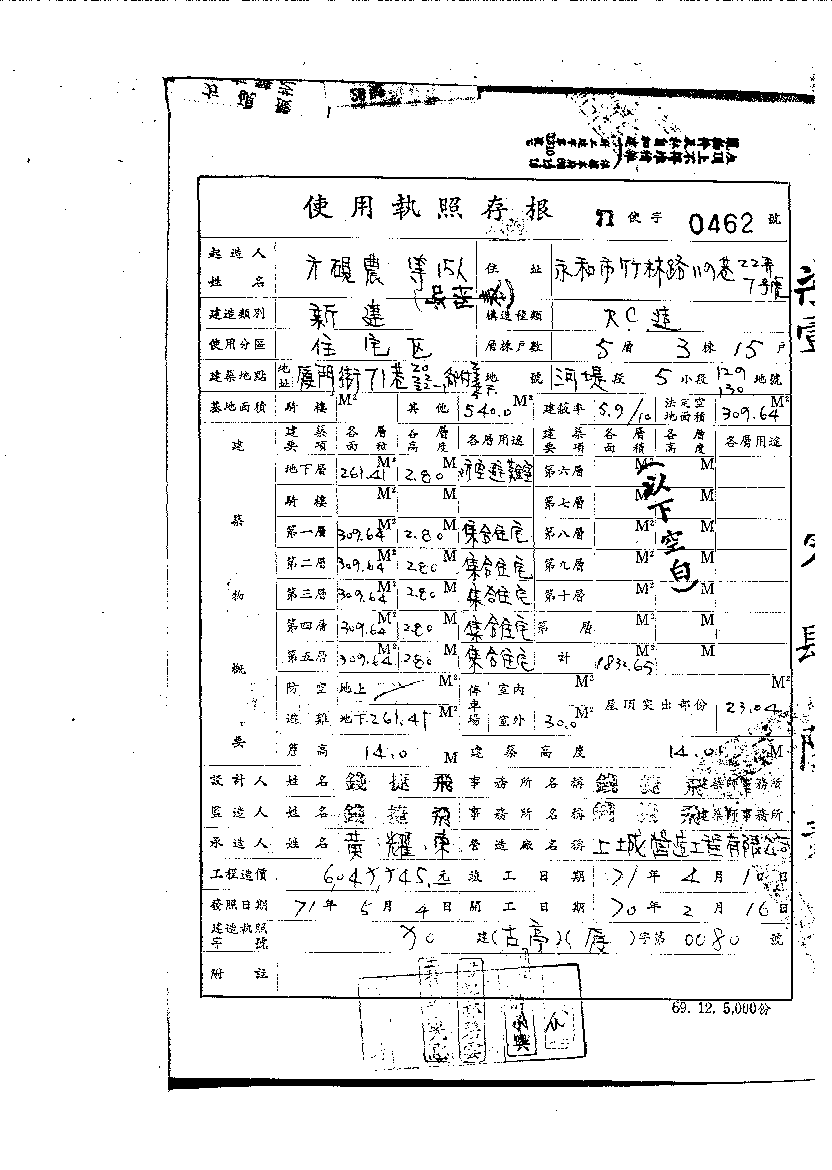 使用執照存根 71 使字 0462 號
起造人姓名 方硯農 等15人 住址 永和市竹林路119巷22弄7號
建造類別 新建 構造種類 RC造
使用分區 住宅區 層棟戶數 5層 3棟 15戶
建築地點 地址 廈門街71巷 地號 河堤段 5小段 129 130 地號
基地面積 騎樓 M² 其他 540.0 M² 建蔽率 5.9/10 法定空地面積 309.64 M²
建築物概要 建築要項 各層面積 各層高度 各層用途 建築要項 各層面積 各層高度 各層用途
地下層 261.41 M² 2.80 M 防空避難室 第六層 M² M (以下空白)
騎樓 M² M 第七層 M² M
第一層 309.64 M² 2.80 M 集合住宅 第八層 M² M
第二層 309.64 M² 2.80 M 集合住宅 第九層 M² M
第三層 309.64 M² 2.80 M 集合住宅 第十層 M² M
第四層 309.64 M² 2.80 M 集合住宅 第 層 M² M
第五層 309.64 M² 2.80 M 集合住宅 計 1832.65 M² M
防空避難 地上 M² 停車場 室內 M² 屋頂突出部份 23.04 M²
地下 261.41 M² 室外 30.0 M²
簷高 14.0 M 建築高度 14.0 M
設計人 姓名 錢 飛 事務所名稱 錢 飛建築師事務所
監造人 姓名 錢 飛 事務所名稱 錢 飛建築師事務所
承造人 姓名 黃耀東 營造廠名稱 上城營造工程有限公司
工程造價 元 竣工日期 71年4月10日
發照日期 71年5月4日 開工日期 70年2月16日
建造執照字號 70 建(古亭)(廈)字第 0080 號
附註
69. 12. 5,000份